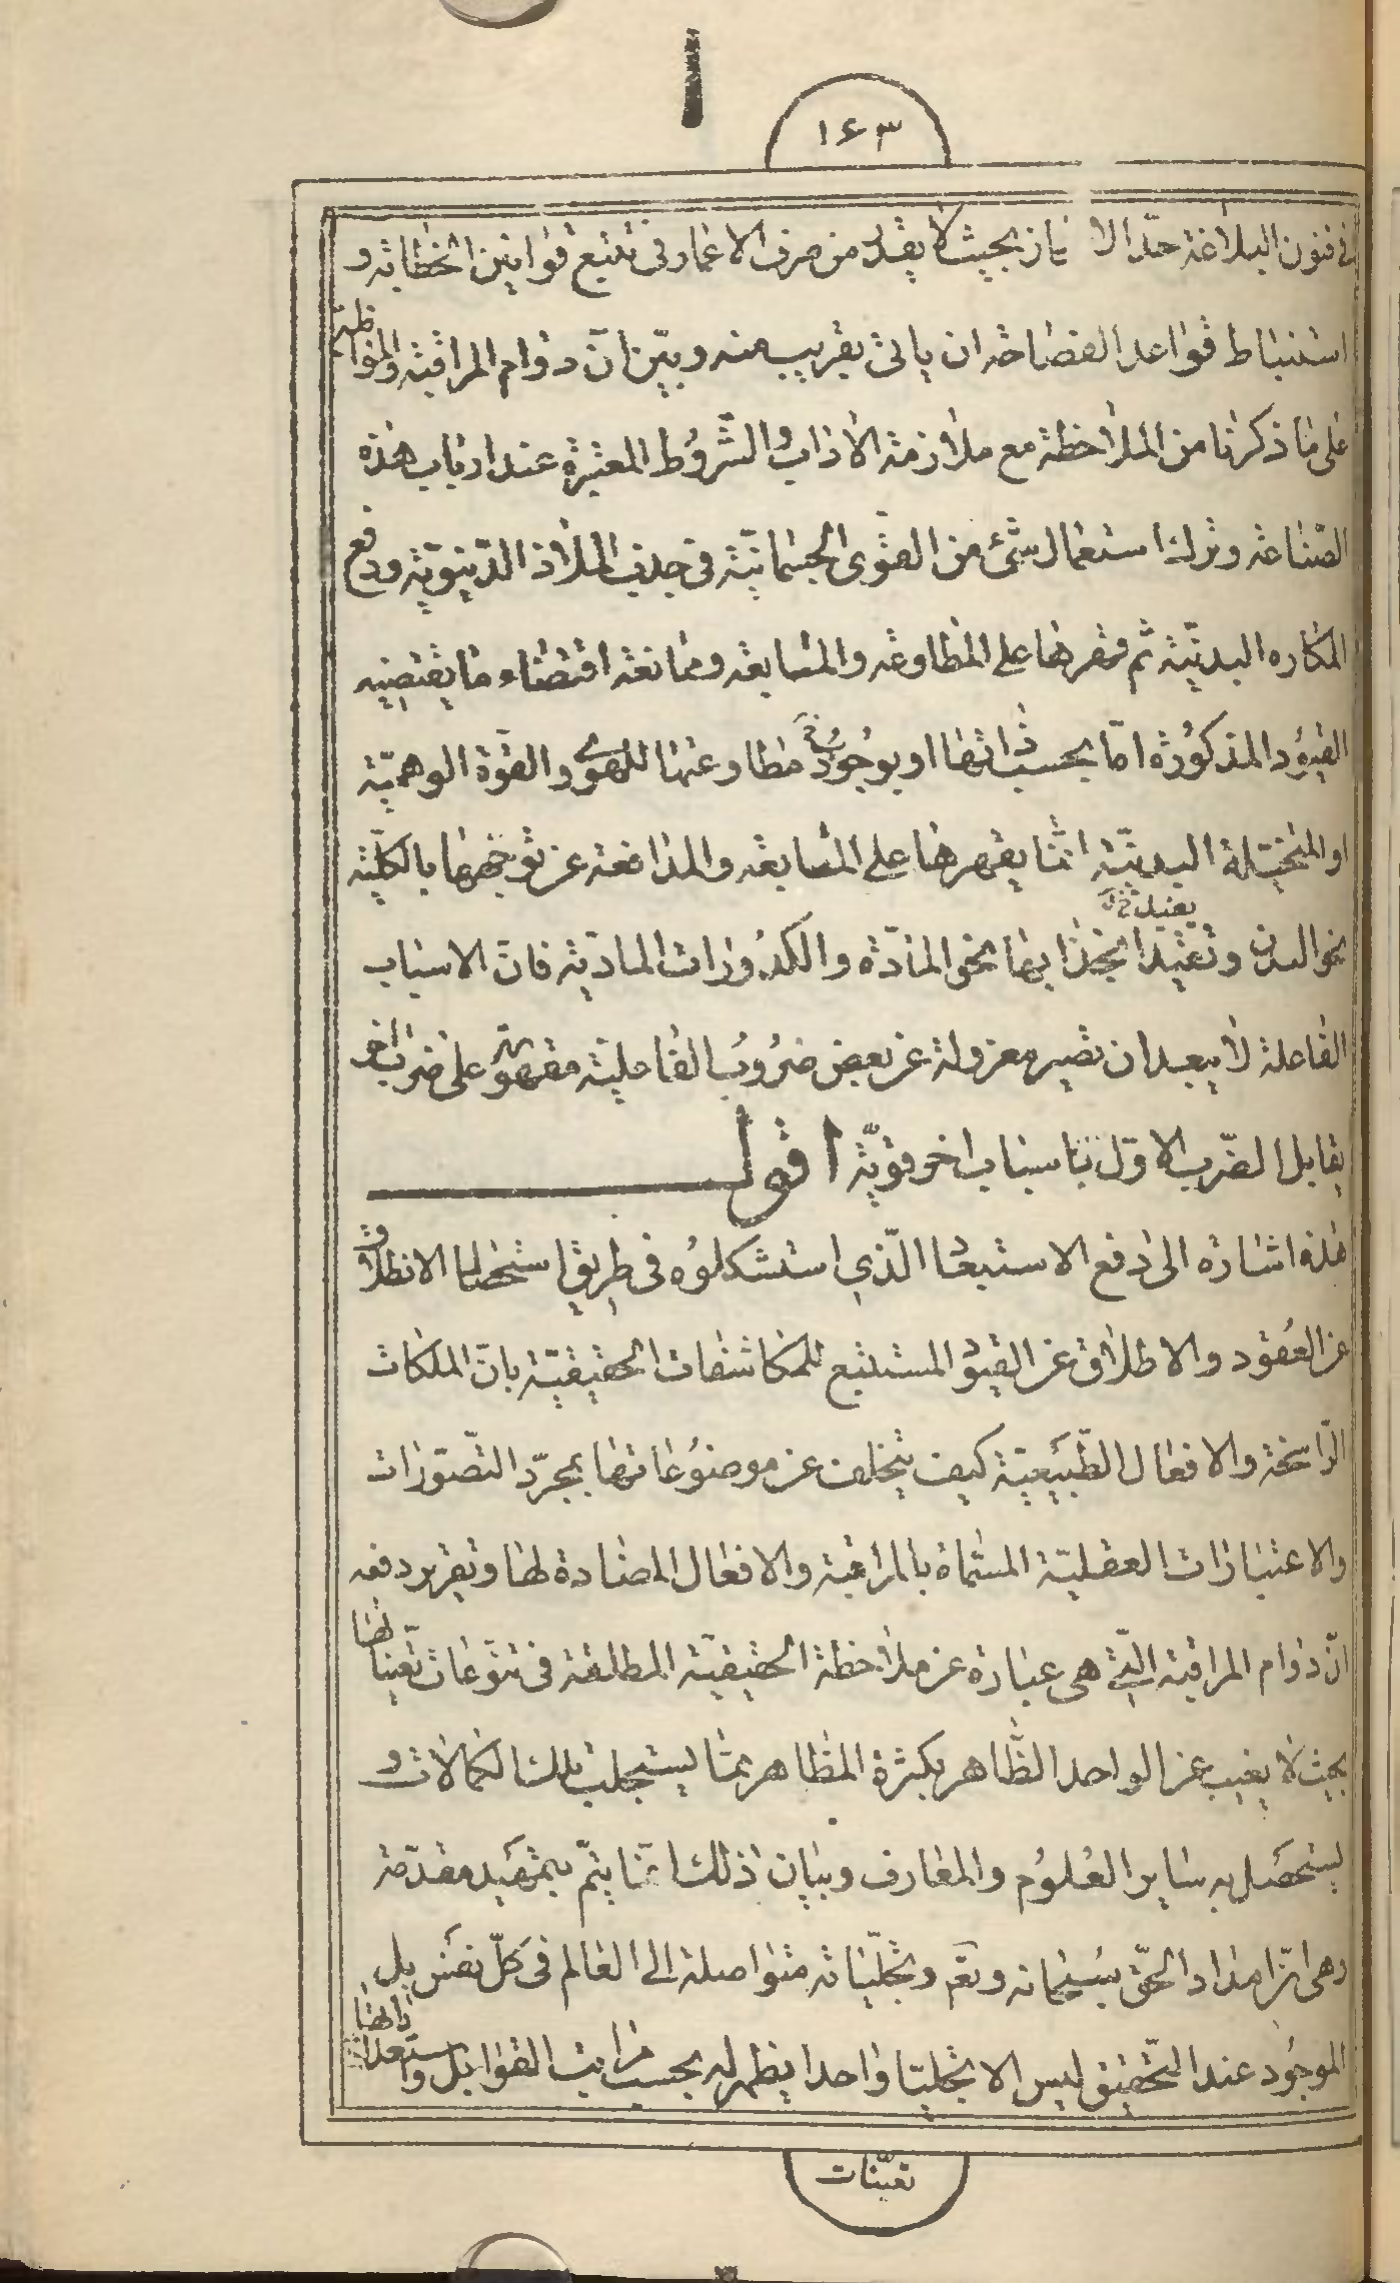 ١٦٣
فى فنون البلاغة حدّ الا يجاز بحيث لا يقدر من صرف الاعمار فى تتبع قوانين الخطابة و
استنباط قواعد الفصاحة ان ياتى بقريب منه وبيّن انّ دوام المراقبة والمواظبة
على ما ذكرنا من الملاحظة مع ملازمة الاداب والشّرُوط المعتبرة عند ارباب هذه
الصّناعة وترك استعمال شئ من القوى الجسمانيّة فى جذب الملاذ الدّنيويّة ودفع
المكاره البدنيّة ثم قهرها على المطاوعة والمشايعة وممانعة اقتضاء ما يقتضيه
القيُود المذكوُرة امّا بحسب ذاتها او بوجُود مطاوعتها للهوى والقوّة الوهميّة
او المتخيّلة البدنيّة انّما يقهرها على المشايعة والمدافعة عن توجّهها بالكلّيّة
نحو البدن وتقييد انجذابها نحو المادّة والكدُورات الماديّة فانّ الاسباب
الفاعلة لا يبعد ان تصير معزولة عن بعض ضرُوب الفاعليّة مقهورة على ضرب اخر
يقابل الضّرب الاوّل باسباب اخر قويّة اقول
هذه اشارة الى دفع الاستبعاد الّذى استشكلوُه فى طريق استحصال الانطلاق
عن العُقود والاطلاق عن القيود المستتبع للمكاشفات الحقيقيّة بانّ الملكات
الرّاسخة والافعال الطّبيعيّة كيف يتخلف عن موضوُعاتها بمجرّد التّصوّرات
والاعتبارات العقليّة المسمّاة بالمراقبة والافعال المضادة لها وتقرير دفعه
انّ دوام المراقبة الّتى هى عبارة عن ملاحظة الحقيقيّة المطلقة فى تنوّعات تعيّناتها
بحيث لا يغيب عن الواحد الظّاهر بكثرة المظاهر ممّا يستجلب تلك الكمالات و
يستحصل به ساير العُلوُم والمعارف وبيان ذلك انّما يتمّ بتمهيد مقدّمة
وهى انّ امداد الحقّ سبُحانه وتعَ وتجلّياته متواصلة الى العالم فى كلّ نفس بل
الموجوُد عند التّحقيق ليس الا تجليّا واحدا يظهر له بحسب مراتب القوابل واستعداداتها
تعيّنات